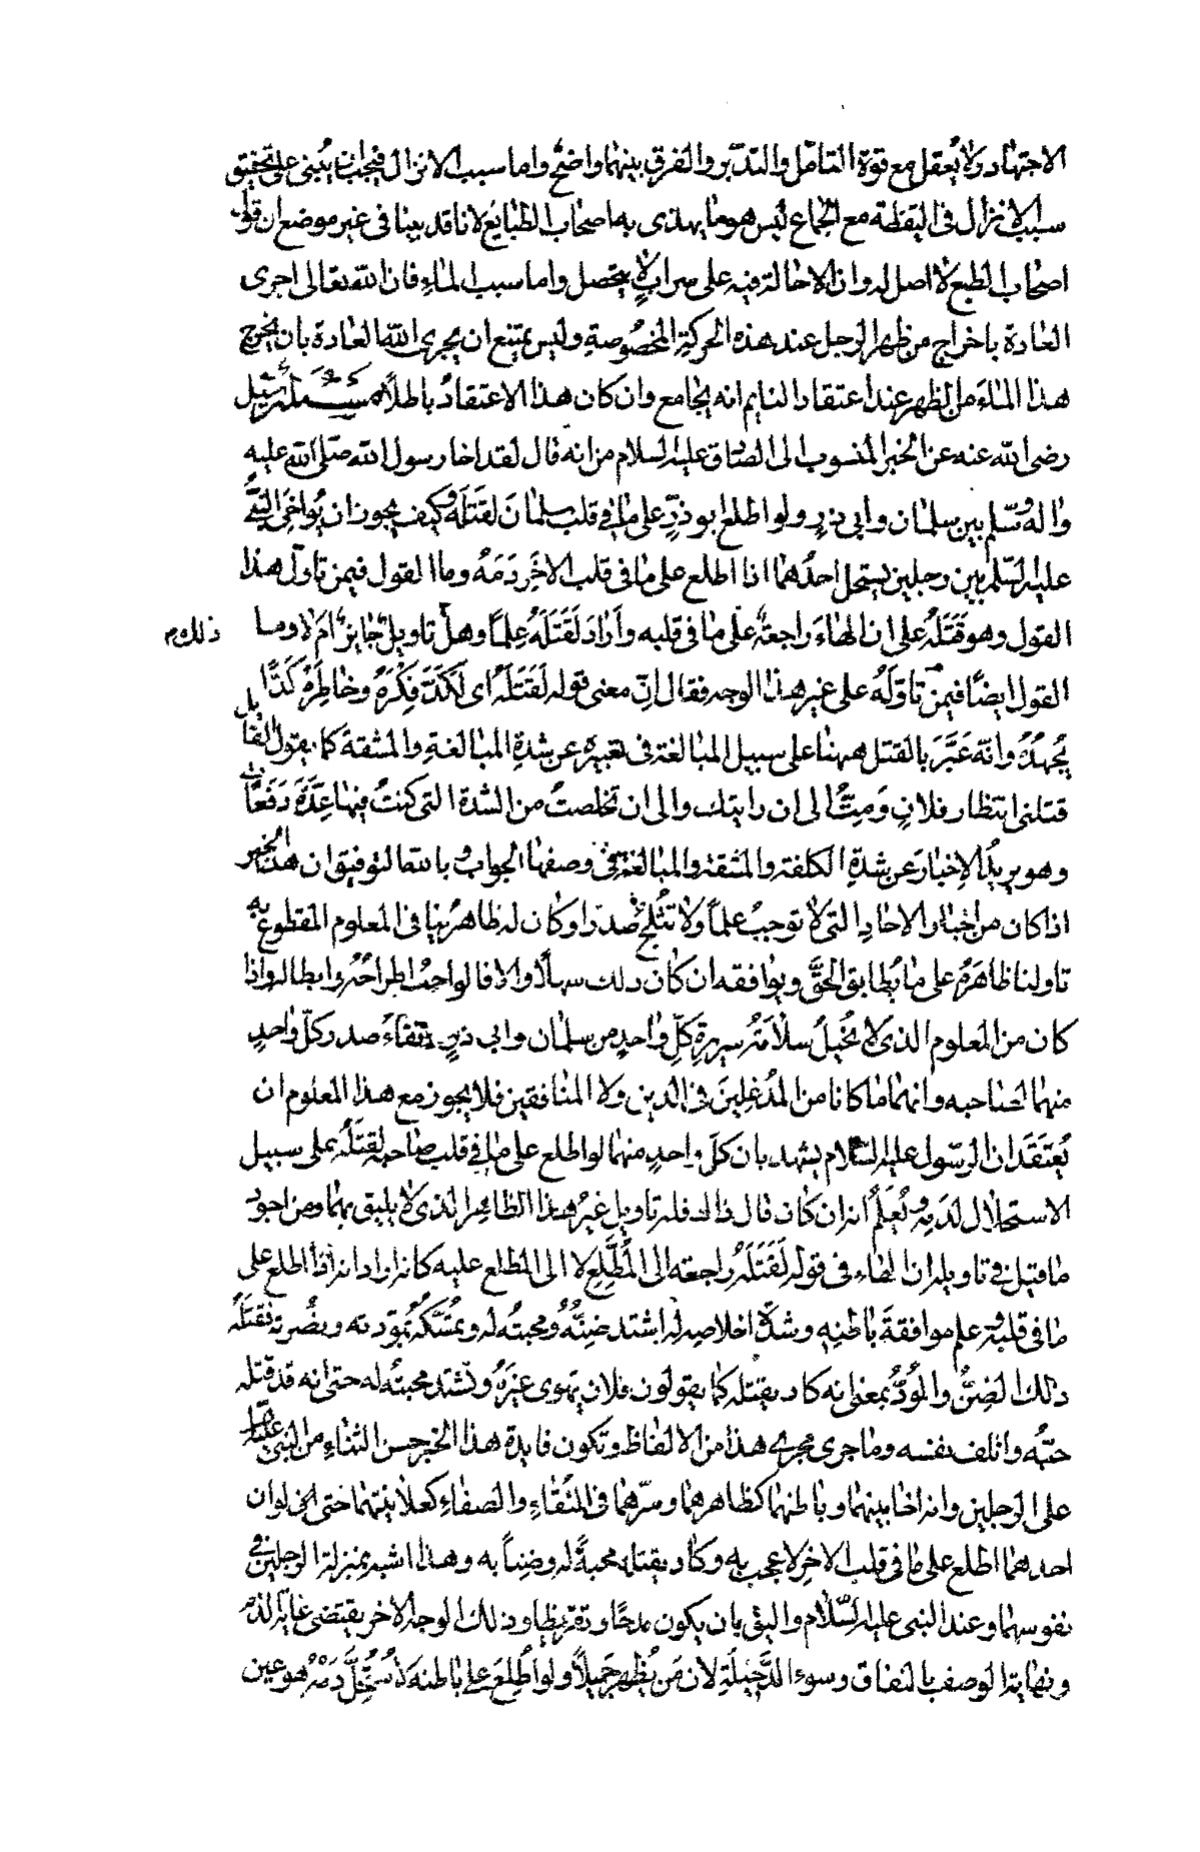 الاجتهاد ولا يُعقل مع قوة التأمّل والتدبّر والفرق بينهما واضحٌ واما سبب الانزال فيجب ان يُبنى على تحقيق
سبب الانزال فى اليقظة مع الجماع ليس هو ما يهذى به اصحاب الطبايع لانا قد بينا فى غير موضع ان قول
اصحاب الطبع لا اصل له وان الاحالة فيه على سرابٍ لا يتحصل واما سبب الماءِ فان الله تعالى اجرى
العادة باخراجه من ظهر الرجل عند هذه الحركةِ المخصُوصةِ وليس يمتنع ان يجرى الله العادة بان يخرج
هذا الماءَ من الظهر عند اعتقاد النايم انه يجامع وان كان هذا الاعتقادُ باطلًا مسئلة سُئِل
رضى الله عنه عن الخبر المنسوب الى الصادق عليه السلام من انه قال لقد اخا رسول الله صلى الله عليه
واله وسّلم بين سلمان وابى ذرٍ ولو اطلع ابو ذرٍّ على ما فى قلب سلمانَ لقَتَلَه وكيف يجوز ان يُواخىَ النبىُّ
عليه السّلم بين رجلين يستحل احدُهما اذا اطلع على ما فى قلب الاخَر دَمَهُ وما القول فيمن تاوّل هذا
القول وهو قَتَلَهُ على ان الهاءَ راجعةٌ على ما فى قلبه وأَرَادَ لَقَتَلَهُ عِلمًا وهل تاويلٌ جايزٌ ام لا وما ذلك
القول ايضًا فيمن تاوّلَهُ على غير هذا الوجه فقال انّ معنى قوله لَقَتَلَهُ اى لَكَدَّ فِكْرَهُ وخاطِرَهُ كَدًّا
يُجهِدُهُ وانّه عَبَّرَ بالقتل ههنا على سبيل المبالغة فى تعبيره عن شدةِ المبالغةِ والمشقة كما يقول القايل
قتلنى انتظار فلانٍ وَمِتُّ الى ان رايتك والى ان تخلصتُ من الشدة التى كنتُ فيها عِدَّةَ دَفَعاتٍ
وهو يريدُ الاِخبارَ عن شدةِ الكلفة والمشقة والمبالغة فى وصفها الجواب و بالله التوفيق ان هذا الخبر
اذا كان من اخبار الاحادِ التى لا توجبُ علمًا ولا تُثلجُ صدرًا وكان له ظاهرٌ ينافى المعلوم المقطوع به
تاولنا ظاهرَهُ على ما يُطابق الحقَّ ويوافقه ان كان ذلك سهلًا والا فالواجبُ اطراحُهُ وابطاله واذا
كان من المعلوم الذى لا يُخيلُ سلامَةُ سريرةِ كلِّ واحدٍ من سلمان وابى ذرٍ ونقاءَ صدر كلّ واحدٍ
منهما لصاحبه وانهما ما كانا من المُدغِلِينَ فى الدين ولا المنافقين فلا يجوز مع هذا المعلوم ان
يُعتَقَدَ ان الرسول عليه السّلام يشهد بان كلَّ واحدٍ منهما لو اطلع على ما فى قلب صاحبه لقتَلَهُ على سبيل
الاستحلال لدَمِه ويُعلَمُ انه ان كان قال ذلك فله تاويل غيرُ هذا الظاهر الذى لا يليق بهما ومن اجود
ما قيل فى تاويله ان الهاء فى قوله لَقَتَلَهُ راجعة الى المُطَّلِعِ لا الى المطلع عليه كانه اراد انه اذا اطلع على
ما فى قلبه وعلم موافقةَ باطنِهِ وشدّةَ اخلاصِهِ له اشتد ضِنُّهُ ومحبتُه له وتمسُّكُهُ بمودّته ونصْرته فقتلَهُ
ذلك الضِنُّ والوُدُّ بمعنى انه كاد يقتله كما يقولون فلان يهوى غيرَهُ وتشتد محبتُه له حتى انه قد قتله
حبُّه واتلف نفسه وما جرى مجرى هذا من الالفاظ وتكون فايدة هذا الخبر حسن الثناءِ من النبى عليه السلام
على الرجلين وانه اخا بينهما وباطنهما كظاهرهما وسرّهما فى النقاءِ والصفاءِ كعلانيتهما حتى انه لو ان
احدهما اطلع على ما فى قلب الاخرِ لاُعجب به وكاد يقتله محبةً له وضِناً به وهذا اشبه بمنزلة الرجلين فى
نفوسهما وعند النبى عليه السّلام واليق بان يكون مدحًا وتقريظا وذلك الوجه الاخر يقتضى غاية الذم
ونهاية الوصف بالنفاق وسوء الدَّخيلَةِ لان مَن يُظهر جميلًا ولو اُطُلِعَ على باطنه لاستُحِلَّ دَمُهُ هو عين